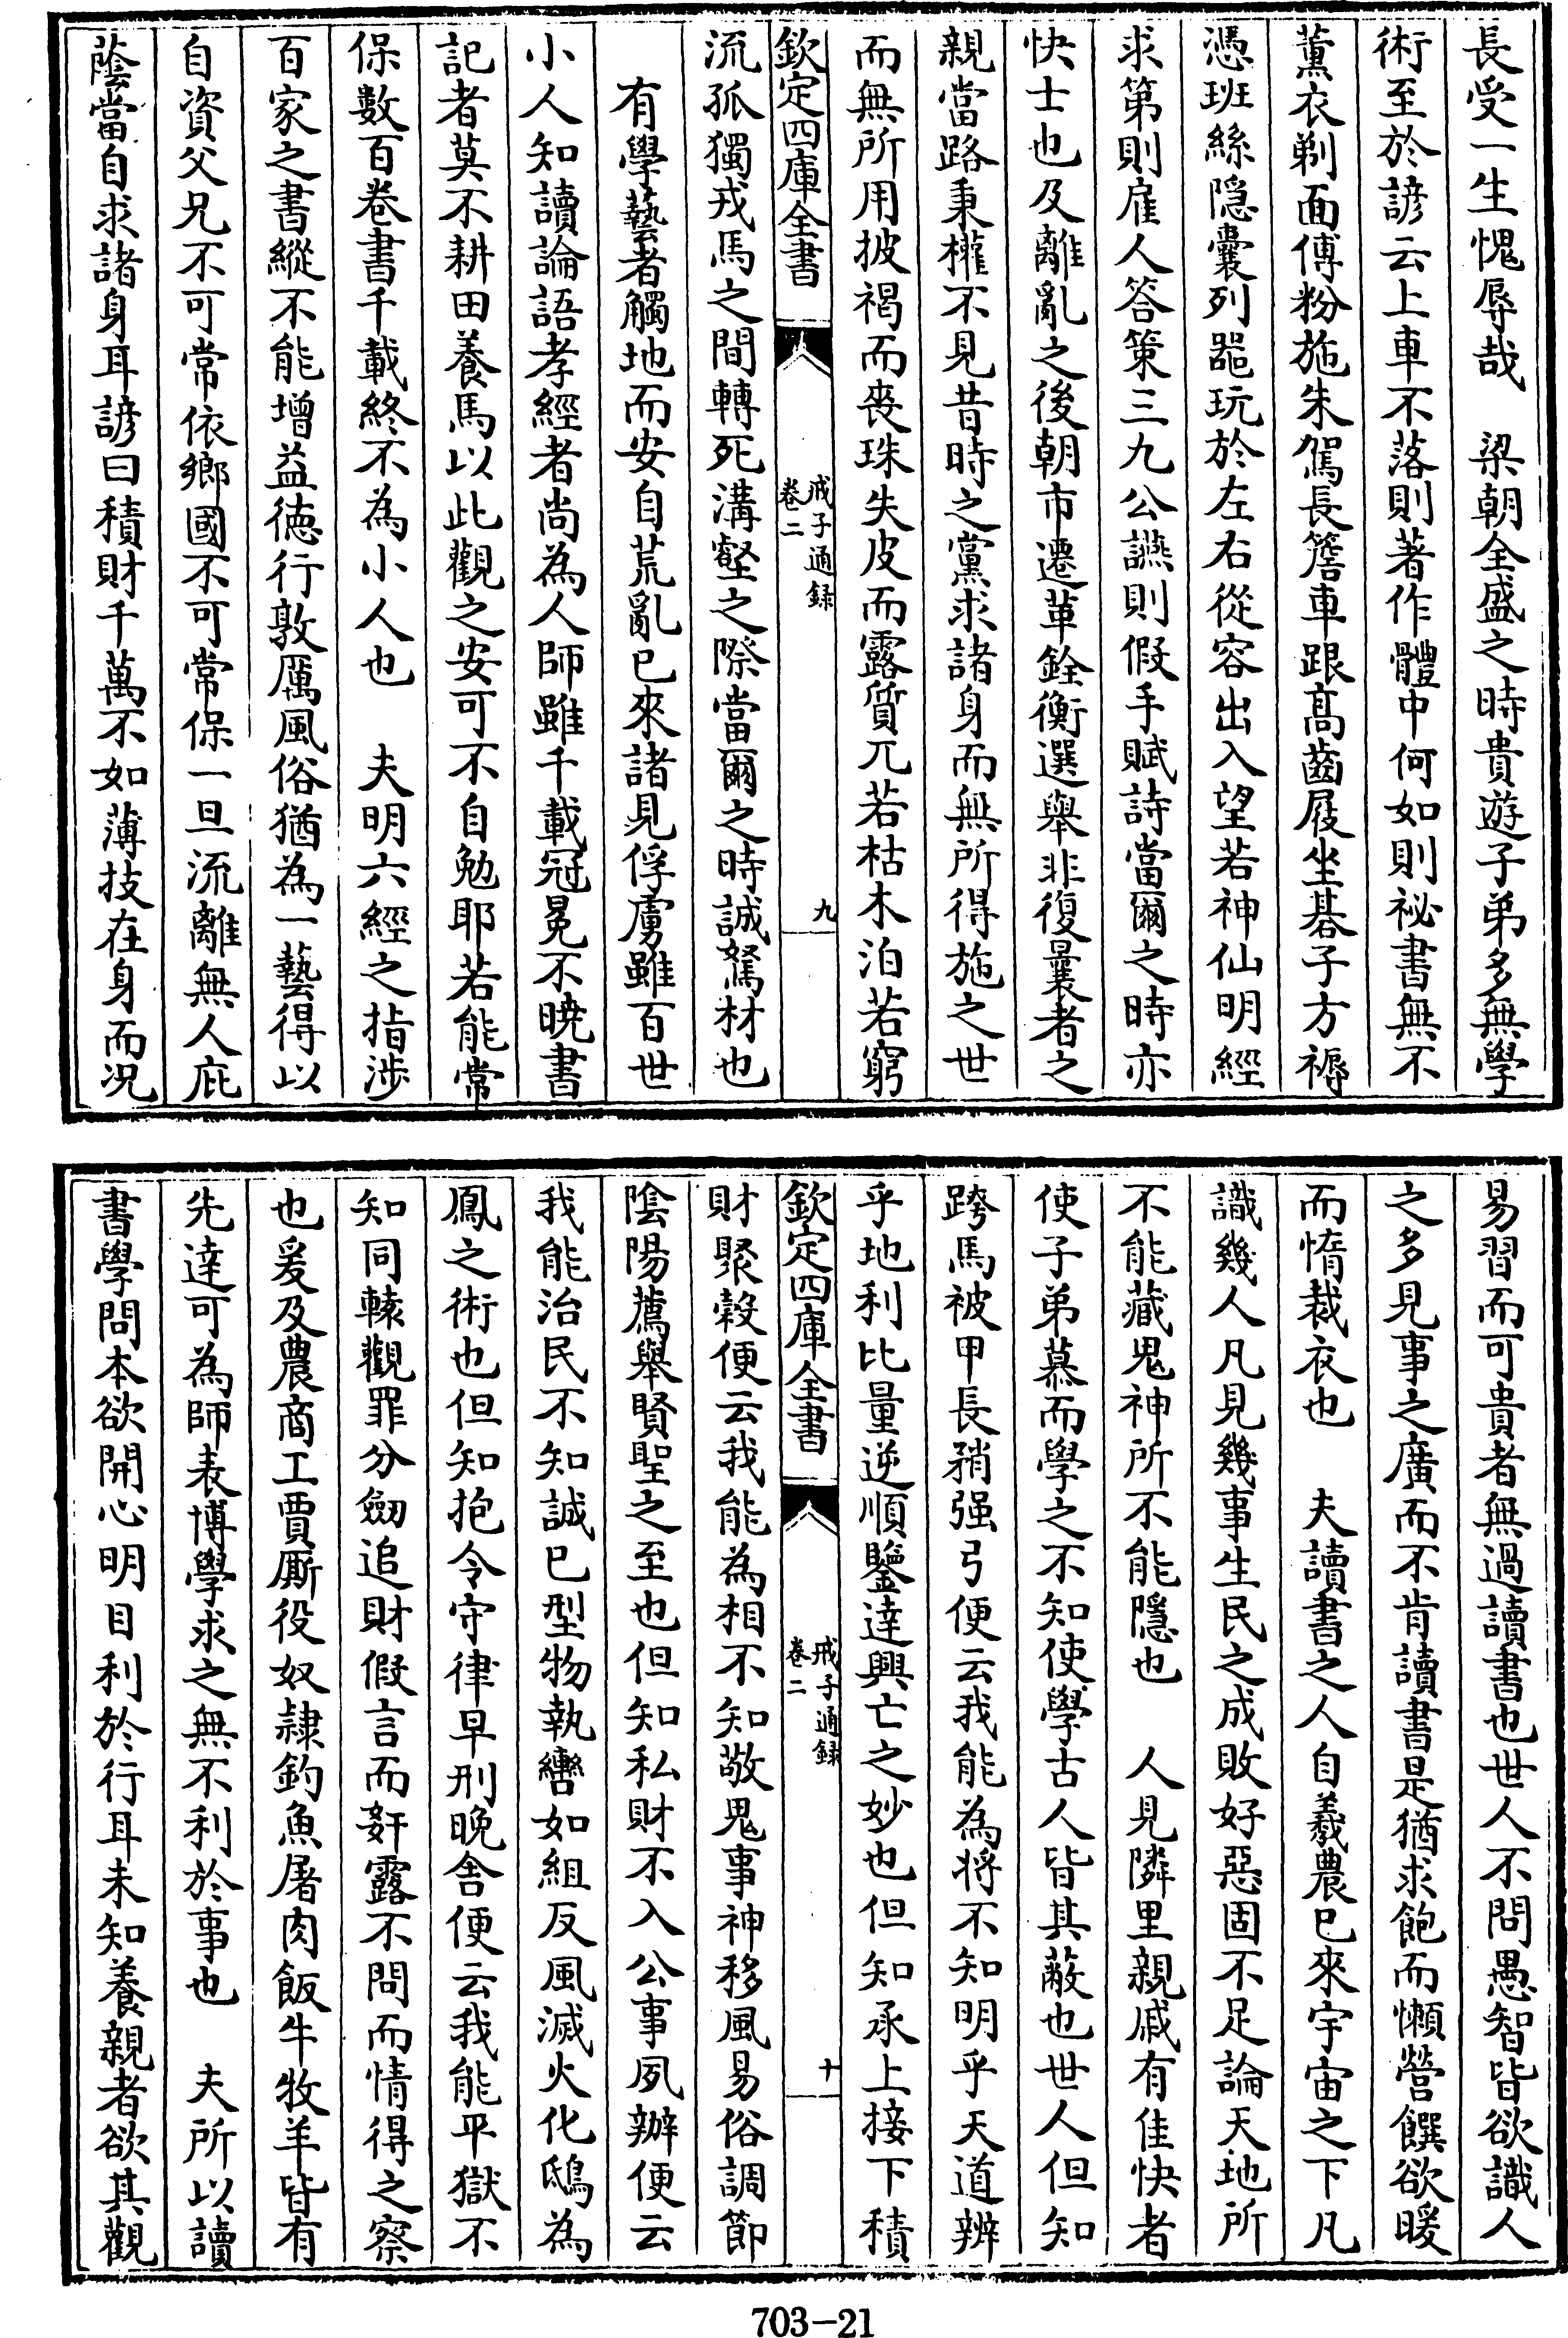 長受一生愧辱哉　梁朝全盛之時貴遊子弟多無學
術至於諺云上車不落則著作體中何如則祕書無不
薰衣剃面傅粉施朱駕長簷車跟高齒屐坐棊子方褥
憑班絲隠囊列器玩於左右從容出入望若神仙明經
求第則雇人答策三九公讌則假手賦詩當爾之時亦
快士也及離亂之後朝市遷革銓衡選舉非復曩者之
親當路秉權不見昔時之黨求諸身而無所得施之世
而無所用披褐而喪珠失皮而露質兀若枯木泊若窮
欽定四庫全書
戒子通録
卷二
九
流孤獨戎馬之間轉死溝壑之際當爾之時誠駑材也
有學藝者觸地而安自荒亂已來諸見俘虜雖百世
小人知讀論語孝經者尚為人師雖千載冠冕不曉書
記者莫不耕田養馬以此觀之安可不自勉耶若能常
保數百卷書千載終不為小人也　夫明六經之指涉
百家之書縱不能增益徳行敦厲風俗猶為一藝得以
自資父兄不可常依鄉國不可常保一旦流離無人庇
蔭當自求諸身耳諺曰積財千萬不如薄技在身而况
易習而可貴者無過讀書也世人不問愚智皆欲識人
之多見事之廣而不肯讀書是猶求飽而懶營饌欲暖
而惰裁衣也　夫讀書之人自羲農已來宇宙之下凡
識幾人凡見幾事生民之成敗好惡固不足論天地所
不能藏鬼神所不能隱也　人見隣里親戚有佳快者
使子弟慕而學之不知使學古人皆其蔽也世人但知
跨馬被甲長矟强弓便云我能為將不知明乎天道辨
乎地利比量逆順鑒達興亡之妙也但知承上接下積
欽定四庫全書
戒子通録
卷二
十
財聚穀便云我能為相不知敬鬼事神移風易俗調節
陰陽薦舉賢聖之至也但知私財不入公事夙辦便云
我能治民不知誠已型物執轡如組反風滅火化鴟為
鳳之術也但知抱令守律早刑晚舎便云我能平獄不
知同轅觀罪分劒追財假言而姧露不問而情得之察
也爰及農商工賈厮役奴隷釣魚屠肉飯牛牧羊皆有
先達可為師表博學求之無不利於事也　夫所以讀
書學問本欲開心明目利於行耳未知養親者欲其觀
703-21